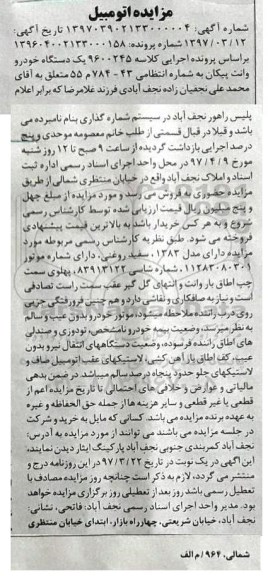 مزایده اتومبیل
شماره آگهی: ۱۳۹۷۰۳۹۰۲۱۳۳۰۰۰۰۰۴ تاریخ آگهی:
۱۳۹۷/۰۳/۱۲ شماره پرونده: ۱۳۹۶۰۴۰۰۲۱۳۳۰۰۰۱۵۸
براساس پرونده اجرایی کلاسه ۹۶۰۰۲۴۵ یک دستگاه خودرو
وانت پیکان به شماره انتظامی ۴۳-۷۸۴م۵۵ متعلق به آقای
محمد علی نجعیان زاده نجف آبادی فرزند غلامرضا که برابر اعلام
پلیس راهور نجف آباد در سیستم شماره گذاری بنام نامبرده می
باشد و قبلا در قبال قسمتی از طلب خانم معصومه موحدی و پنج
درصد اجرایی بازداشت گردیده از ساعت ۹ صبح تا ۱۲ روز شنبه
مورخ ۹۷/۴/۹ در محل واحد اجرای اسناد رسمی اداره ثبت
اسناد و املاک نجف آباد واقع در خیابان منتظری شمالی از طریق
مزایده حضوری به فروش می رسد و مورد مزایده از مبلغ چهل
و پنج میلیون ریال قیمت ارزیابی شده توسط کارشناس رسمی
شروع و به هر کس خریدار باشد به بالاترین قیمت پیشنهادی
فروخته می شود. طبق نظریه کارشناس رسمی مربوطه مورد
مزایده دارای مدل ۱۳۸۳، سفید روغنی، دارای شماره موتور
۱۱۲۸۳۰۸۰۳۰۱، شماره شاسی ۸۳۹۱۳۱۲۲، پهلوی سمت
چپ اطاق بار وانت و انتهای گل گیر عقب سمت راست تصادفی
است و نیاز به صافکاری و نقاشی دارد و هم چنین فرورفتگی جزیی
روی درب راننده ملاحظه میشود، موتور خودرو بدون عیب و سالم
به نظر میرسد، وضعیت بیمه خودرو نامشخص، تودوزی و صندلی
های اطاق راننده فرسوده، وضعیت دستگاههای انتقال نیرو بدون
عیب، کف اطاق بار آهن کشی، لاستیکهای عقب اتومبیل صاف و
لاستیکهای جلو حدود پنجاه درصد سالم میباشد. در ضمن بدهی
مالیاتی و عوارض و خلافی های احتمالی تا تاریخ مزایده اعم از
قطعی یا غیر قطعی و سایر هزینه ها از جمله حق الحفاظه و غیره
به عهده برنده مزایده می باشد. کسانی که مایل به خرید و شرکت
در جلسه مزایده می باشند می توانند از مورد مزایده به آدرس:
نجف آباد کمربندی جنوبی نجف آباد پارکینگ ایثار دیدن نمایند،
این آگهی در یک نوبت در تاریخ ۹۷/۳/۲۲ در این روزنامه درج و
منتشر می گردد، لازم به ذکر است چنانچه روز مزایده مصادف با
تعطیل رسمی باشد روز بعد از تعطیلی روز برگزاری مزایده خواهد
بود. مدیر واحد اجرای اسناد رسمی نجف آباد: فاتحی، نشانی:
نجف آباد، خیابان شریعتی، چهارراه بازار، ابتدای خیابان منتظری
شمالی، ۹۶۴/م الف